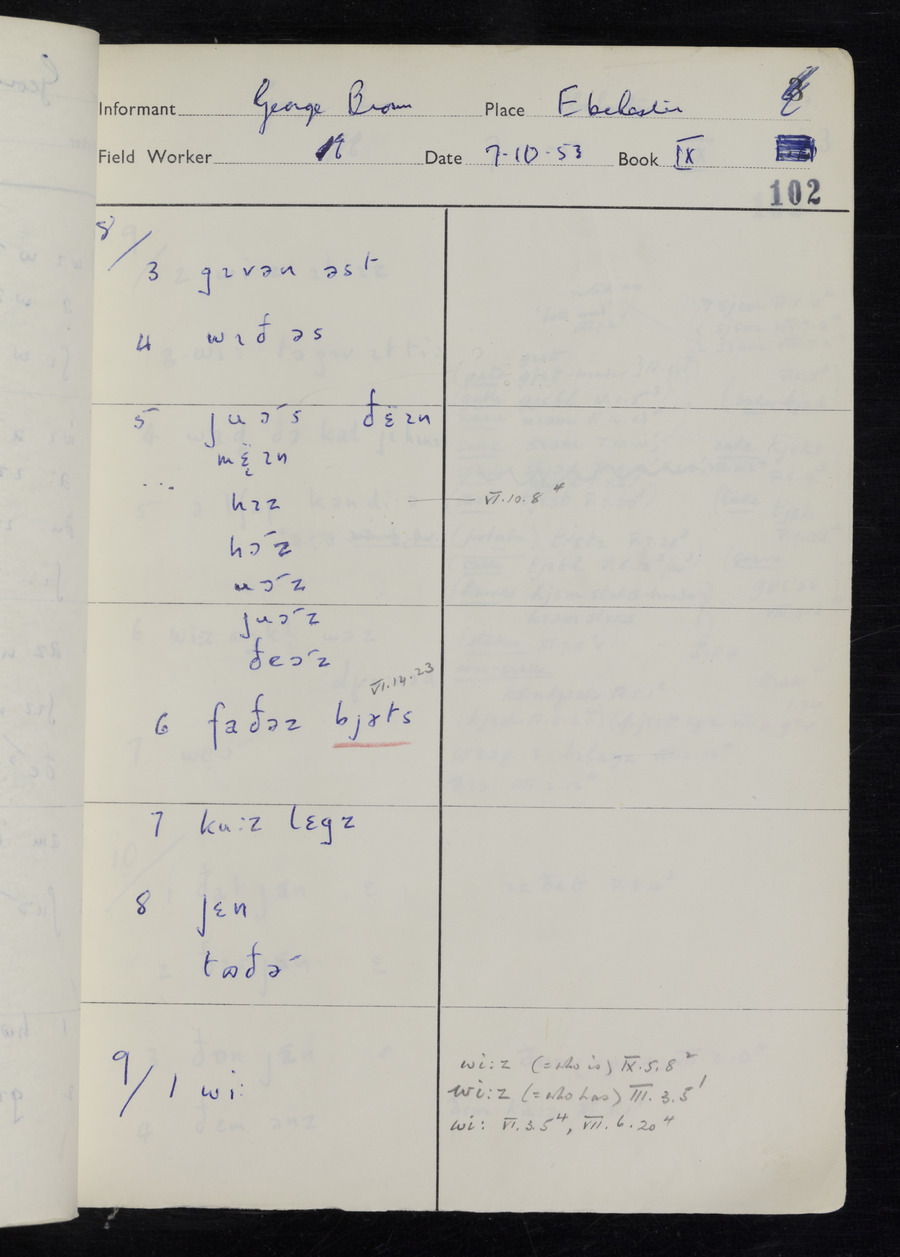 Informant George Brown Place Ebchester
Field Worker Date 7-10-53 Book IX
102
8/
3 gɪvən əst
4 wɪðəs
5 juɔ˞s ðɛ̈ɪn
mɛ̈ɪn
...
hɪz VI.10.8⁴
hɔ˞z
uɔ˞z
juɔ˞z
ðeɔ˞z
VI.14.23
6 faðəz bjɤts
7 ku:z lɛgz
8 jɛn
tɒðə˞
wi:z (=who is) IX.5.8²
9/1 wi: wi:z (=who has) III.3.5¹
wi: VI.3.5⁴, VII.6.20⁴